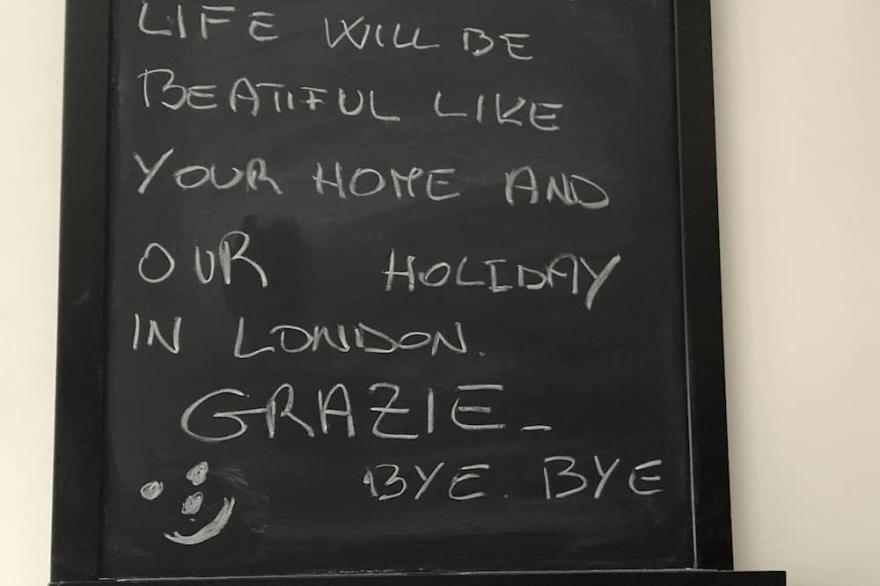 LIFE WILL BE
BEATIFUL LIKE
YOUR HOME AND
OUR HOLIDAY
IN LONDON.
GRAZIE_
BYE. BYE